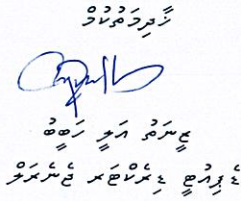 ޚާދިމަތުކުމް
ޒީނަތު އަލީ ހަބީބު
ޑެޕިއުޓީ ޑިރެކްޓަރ ޖެނެރަލް